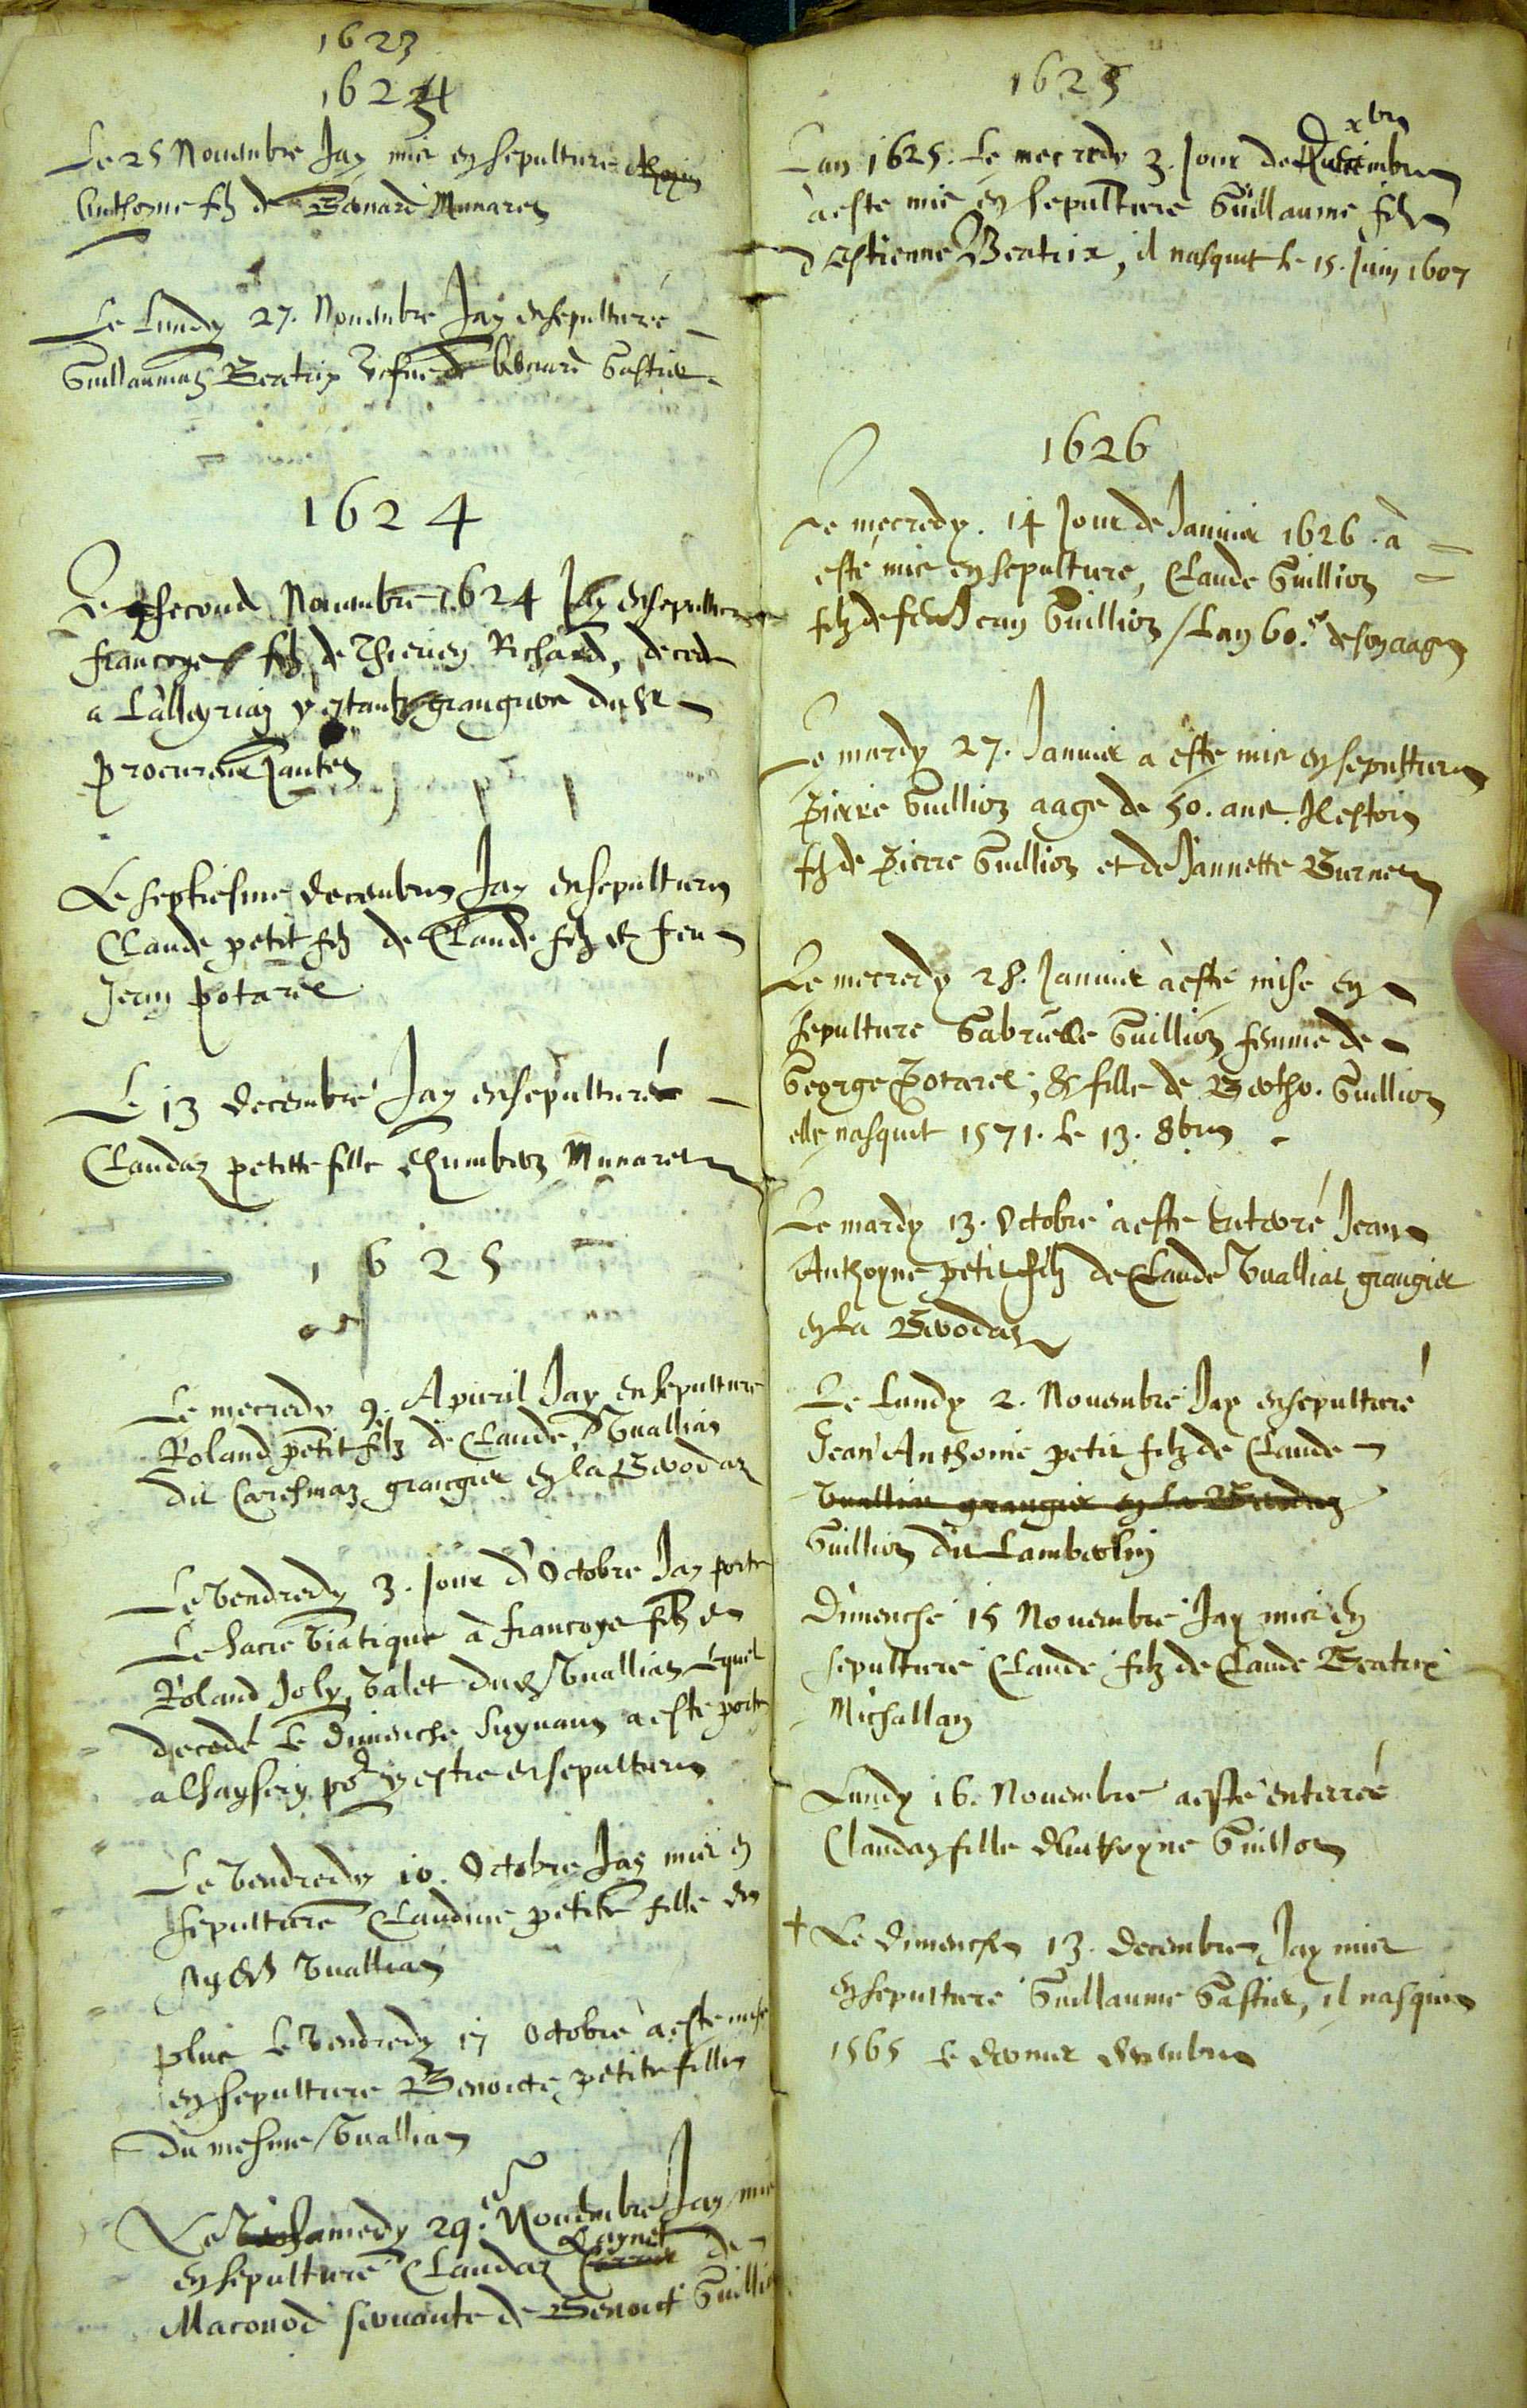 1623
1624
Le 25 Novembre Jay mis en sepulture
Anthoyne filz de Bernard Munares
Le Lundy 27. Novembre Jay ensepulturé
Guillaumaz Beatrix vefue de Gastier
1624
Le second Novembre 1624 Jay ensepulturé
francoys filz de Richard, decede
a Lalleyriaz y estant grangier du sr
procureur Jantet
Le septiesme decembre Jay ensepulture
Claude petit filz de Claude filz de feu
Jean Potarel
Le 13 decembre Jay ensepulturé
Claudaz petitte fille d'humbert Munares
1625
Le mecredy 9. Apvril Jay ensepulture
Roland petit filz de Claude Vualliat
dit Caresmaz grangier en la Berodaz
Le Vendredy 3. jour d'Octobre Jay porte
Le sacre Viatique à francoys filz de
Roland Joly, Valet dud Vualliat Lequel
decedé le dimenche suyvant a este porte
a Chaysery po.r y estre ensepulture
Le Vendredy 10. Octobre Jay mis en
sepulture Claudine petite fille du
sud Vualliat
plus le Vendredy 17 Octobre a este mise
en sepulture Benoicte petite fille
du mesme Vualliat
Le samedy 29.e Novembre Jay mis
Laynet
en sepulture Claudaz de
Maconod servante de Benoict Guillion
1625
xbre
Lan 1625. Le mecredy 3. Jour de
à este mis en sepulture Guillaume filz
d'Estienne Beatrix, il nasquit le 15. Juin 1607
1626
Le mecredy. 14 Jour de Janvier 1626. à
esté mis en sepulture, Claude Guillion
filz de feu Jean Guillion / Lan 60.e de son aage
Le mardy 27. Janvier a este mis en sepulture
Pierre Guillion aage de 50. ans. Il estoit
filz de Pierre Guillion et de Jannette Burnet
Le mecredy 28. Janvier à esté mise en
sepulture Gabrielle Guillion femme de
George Potarel, & fille de Bertho. Guillion
elle nasquit 1571. le 13. 8bre
Le mardy 13. Octobre a este enterré Jean
Anthoyne petit filz de Claude Vualliat grangier
en la Berodaz
Le Lundy 2. Novembre Jay ensepulturé
Jean Anthoine petit filz de Claude
Vualliat grangier en la Berodaz
Guillion dit Lamberlin
Dimenche 15 Novembre Jay mis en
sepulture Claude filz de Claude Beatrix
Michallan
Lundy 16. Novembre a este enterrée
Claudaz fille d'Anthoyne Guillon
+ Le dimenche 13. decembre Jay mis
en sepulture Guillaume Gastier, il nasquit
1565 le dernier decembre